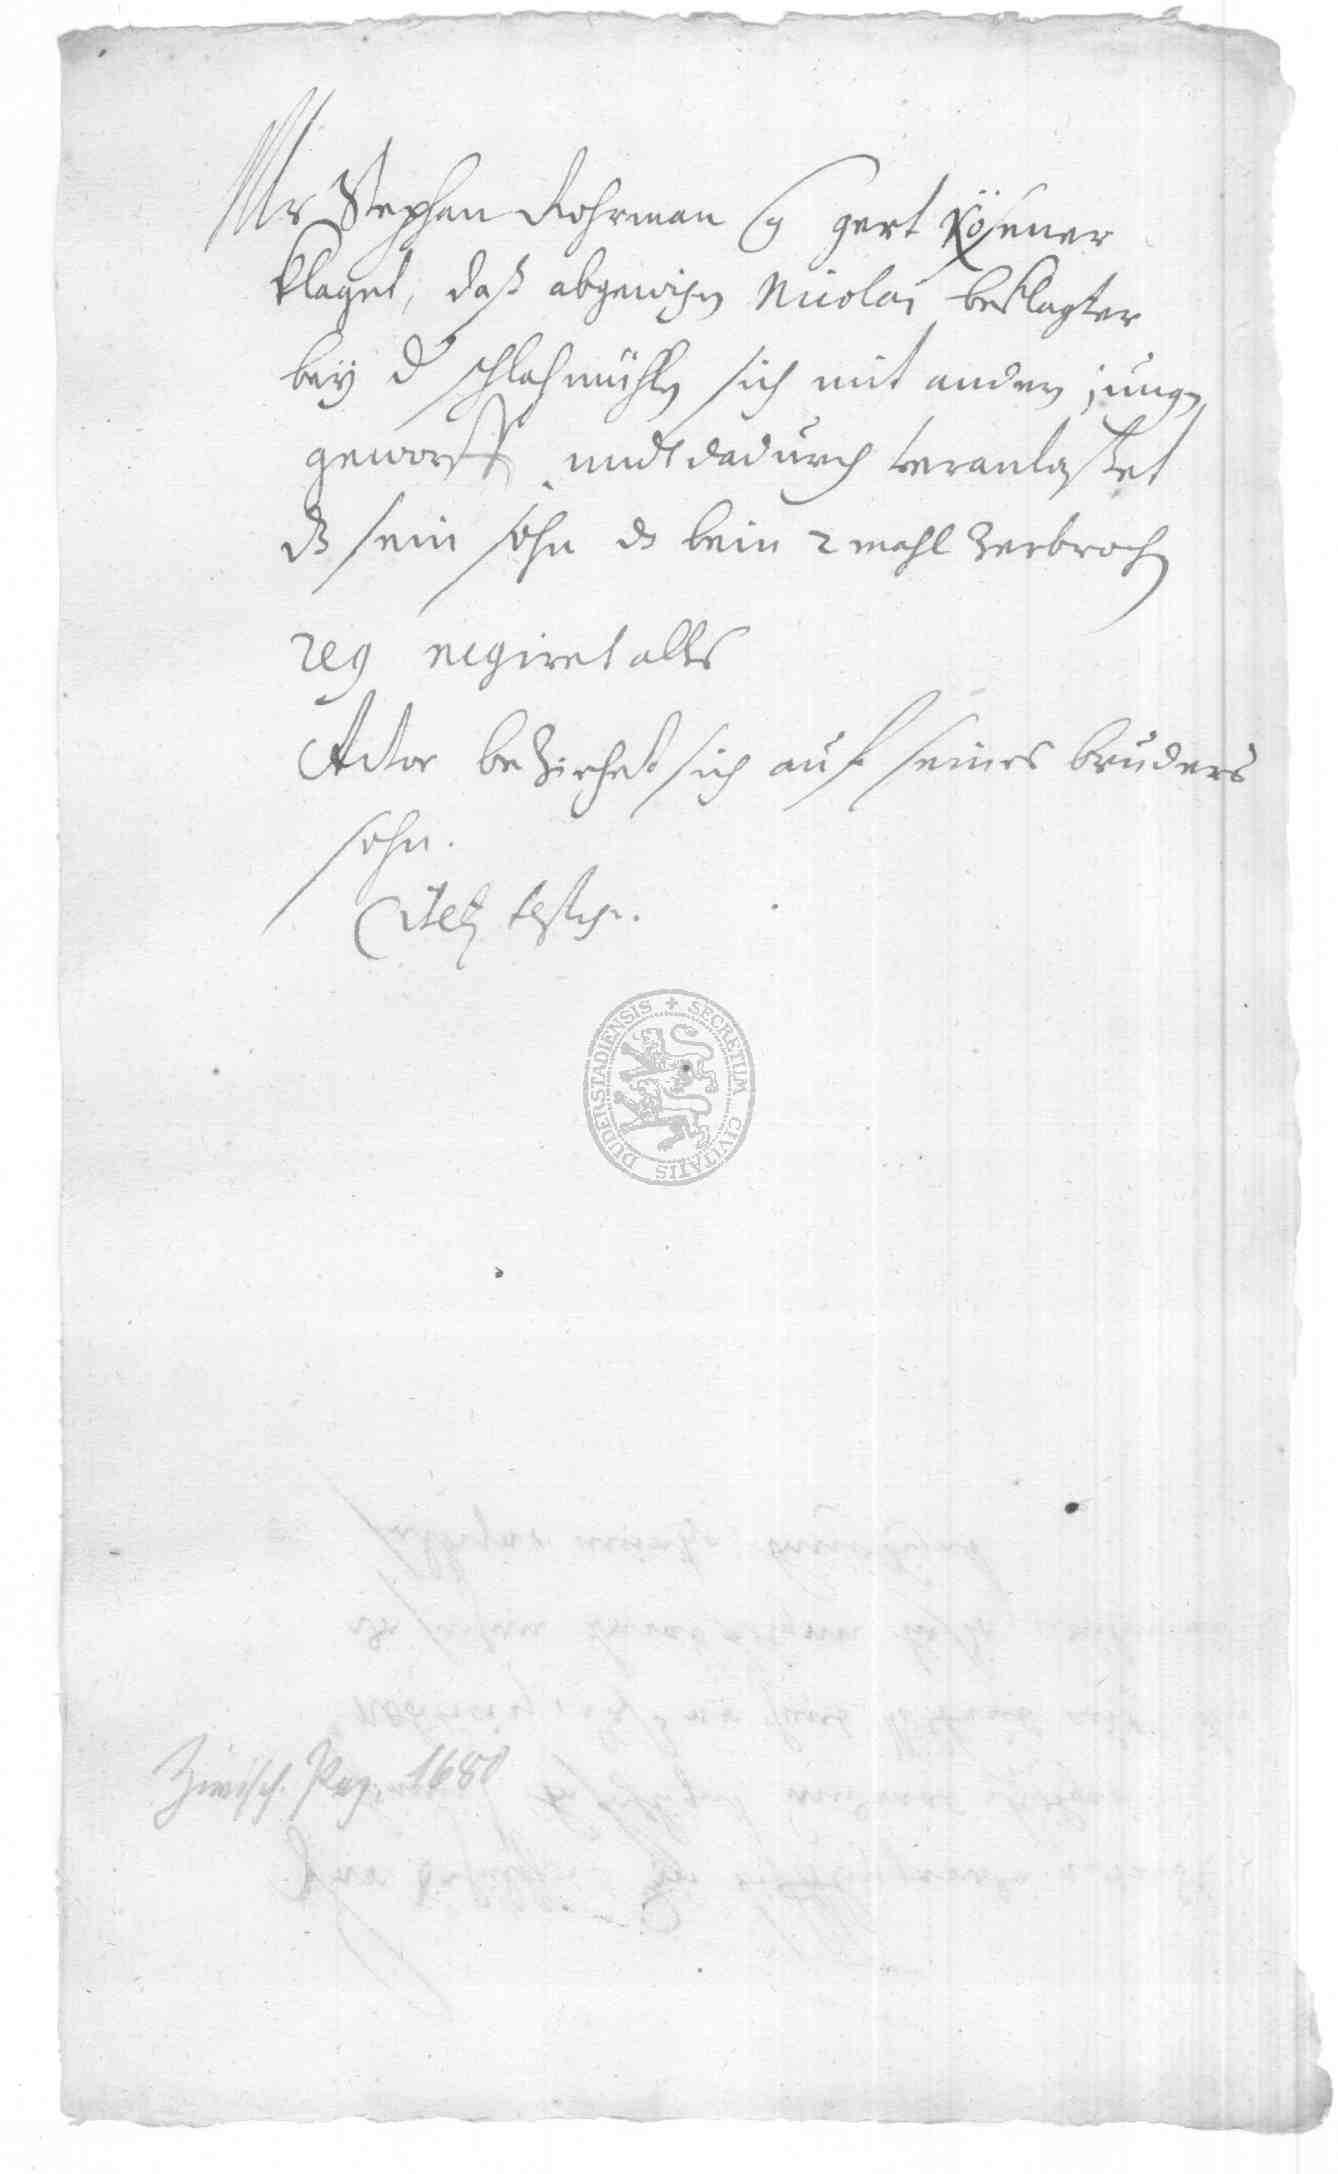 Mr Stephan Rohrman Cg gert Kösener
klaget, daß abgewichen Nicolai beklagter
bey d schlahmühlen sich mit andern jungen
geworffen undt dadurch veranlaßet
dz sein sohn dz bein 2 mahl zerbrochen
reg negiret alles
Actor beziehet sich auf seines bruders
sohn.
Citetur testis.
SECRETUM CIVITATIS DUDERSTADIENSIS
Zwisch. Pag. 1680